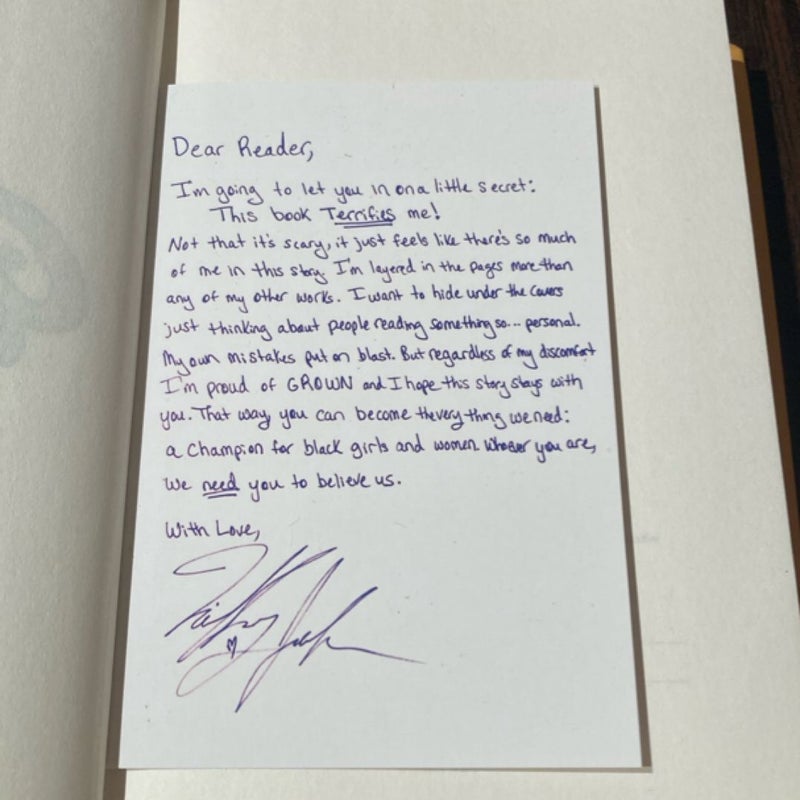 Dear Reader,
I'm going to let you in on a little secret:
This book Terrifies me!
Not that it's scary, it just feels like there's so much
of me in this story. I'm layered in the pages more than
any of my other works. I want to hide under the covers
just thinking about people reading something so... personal.
My own mistakes put on blast. But regardless of my discomfort
I'm proud of GROWN and I hope this story stays with
you. That way, you can become the very thing we need:
a champion for black girls and women. Whoever you are,
we need you to believe us.
With Love,
Tiffany Jackson